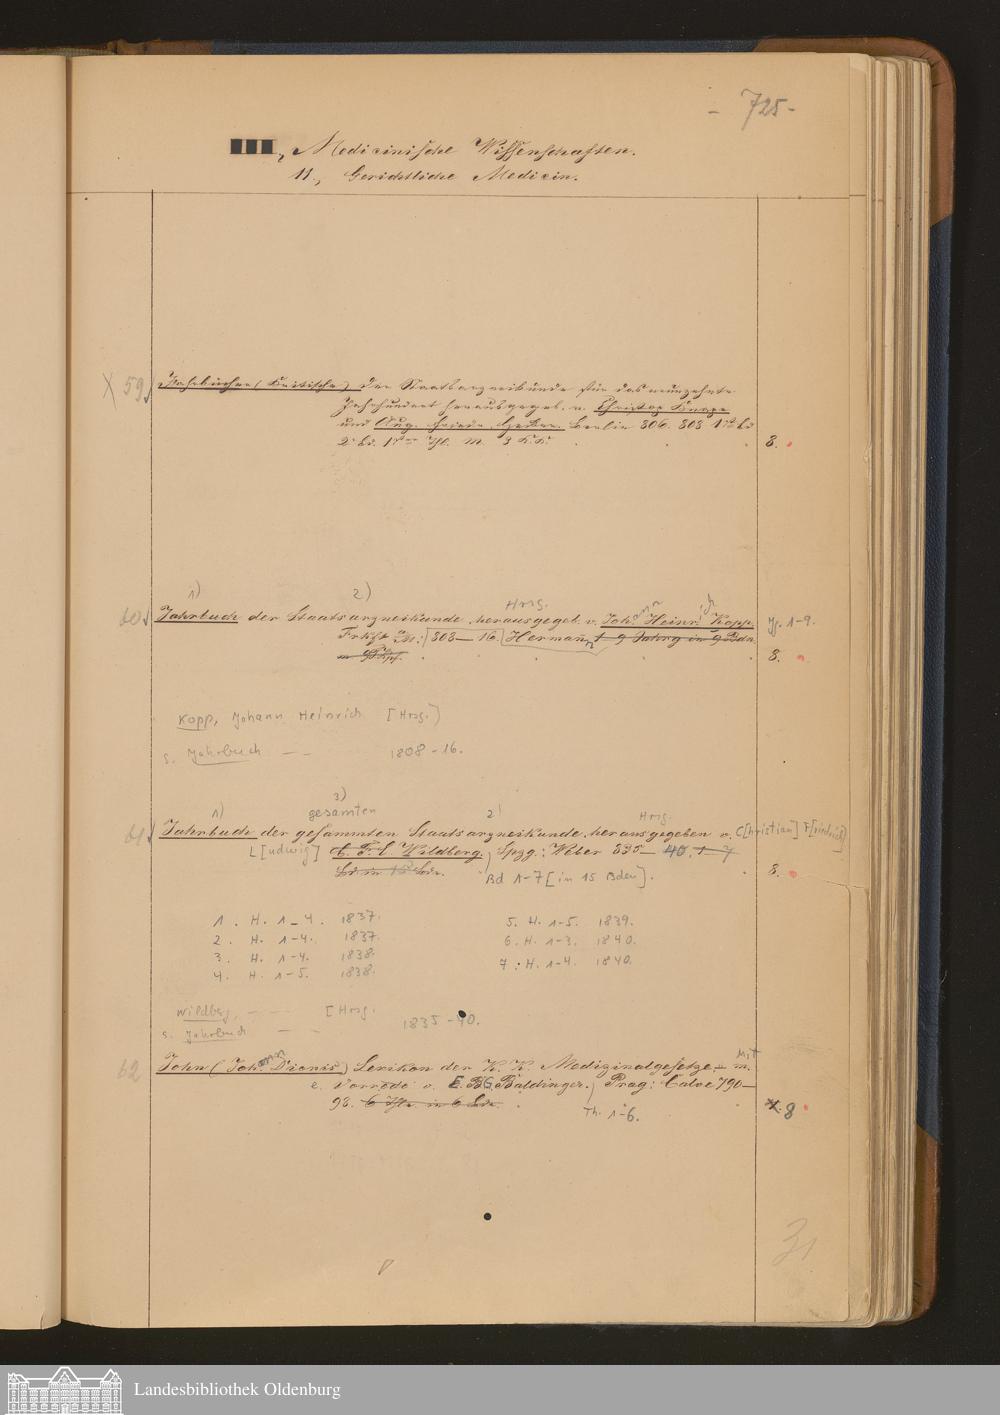 - 725 -
III, Medicinische Wissenschaften.
11., Gerichtliche Medicin.
59 Jahrbücher (Kritische) der Staatsarzneikunde für das neunzehnte
Jahrhundert herausgegeb. v. Christop Knape
und Aug. Friedr. Hecker. Berlin 806. 808 1r Bd
2r Bd. 1r Thl. m. 3 8.
1) 2) Hrsg.
60 Jahrbuch der Staatsarzneikunde herausgegeb. v. Joh.ann Heinr.ich Kopp. Jg. 1-9.
Frkft a/M.: 808-16. Hermann 1-9 Jahrg in 9 Bdn
8.
Kopp, Johann Heinrich [Hrsg.]
s. Jahrbuch - - 1808-16.
1) 3) gesamten 2) Hrsg.
61 Jahrbuch der gesammten Staatsarzneikunde. herausgegeben v. C[hristian] F[riedrich]
L[udwig] C. F. L. Wildberg. Lpzg.: Weber 835-40. 1-7
Bde in 15 Bdn. Bd 1-7 [in 15 Bden]. 8.
1. H. 1-4. 1837. 5. H. 1-5. 1839.
2. H. 1-4. 1837. 6. H. 1-3. 1840.
3. H. 1-4. 1838. 7. H. 1-4. 1840.
4. H. 1-5. 1838.
Wildberg, - - [Hrsg.
s. Jahrbuch - - 1835-40.
62 John (Joh.ann Dionis) Lexikon der K. K. Medizinalgesetze - Mit m.
e. Vorrede v. E. G. Baldinger. Prag: Calve 790-
98. 6 Thle. in 6 Bdn. Th. 1-6. 8
31
Landesbibliothek Oldenburg